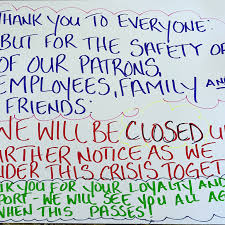 THANK YOU TO EVERYONE:
BUT FOR THE SAFETY OF
OF OUR PATRONS,
EMPLOYEES, FAMILY AND
FRIENDS:
WE WILL BE CLOSED U
URTHER NOTICE AS WE
NDER THIS CRISIS TOGET
YOU FOR YOUR LOYALTY AND
PORT - WE WILL SEE YOU ALL AG
WHEN THIS PASSES!